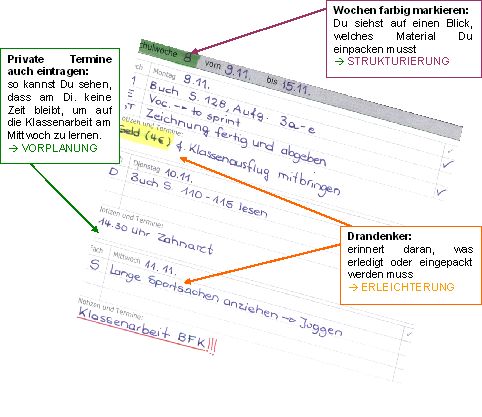 Wochen farbig markieren:
Du siehst auf einen Blick,
welches Material Du
einpacken musst
→ STRUKTURIERUNG
Private Termine
auch eintragen:
so kannst Du sehen,
dass am Di. keine
Zeit bleibt, um auf
die Klassenarbeit am
Mittwoch zu lernen.
→ VORPLANUNG
Schulwoche 8 vom 9.11. bis 15.11.
Fach Montag 9.11.
Buch S. 128, Aufg. 3a-e
E Voc. → to sprint
Zeichnung fertig und abgeben
Notizen und Termine:
Geld (4€) f. Klassenausflug mitbringen
Dienstag 10.11.
D Buch S. 110-115 lesen
Notizen und Termine:
14.30 Uhr Zahnarzt
Fach Mittwoch 11.11.
S Lange Sportsachen anziehen → Joggen
Notizen und Termine:
Klassenarbeit BFK!!!
Drandenker:
erinnert daran, was
erledigt oder eingepackt
werden muss
→ ERLEICHTERUNG